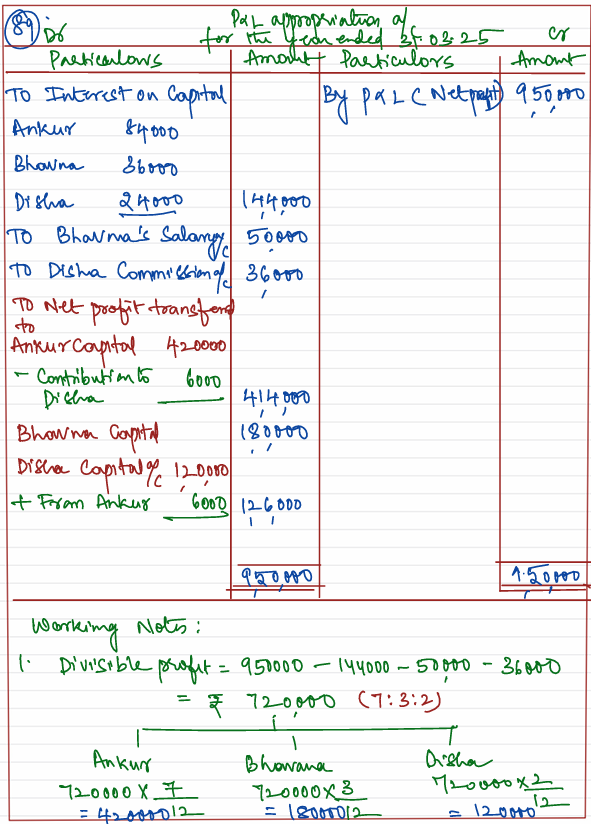 89
P&L appropriation a/
Dr for the year ended 31.03.25 Cr
Particulars Amount Particulars Amount
To Interest on Capital By P&L (Net profit) 950,000
Ankur 84000
Bhavna 36000
Disha 24000 144,000
To Bhavna's Salary a/c 50000
To Disha Commission a/c 36000
To Net profit transferd
to
Ankur Capital 420000
- Contribution to 6000
Disha 414,000
Bhavna Capital 180000
Disha Capital a/c 120,000
+ From Ankur 6000 126000
950,000 950000
Working Notes:
1. Divisible profit = 950000 - 144000 - 50,000 - 36000
= ₹ 720,000 (7:3:2)
Ankur Bhavana Disha
720000 x 7/12 720000 x 3/12 720000 x 2/12
= 420000 = 180000 = 120000